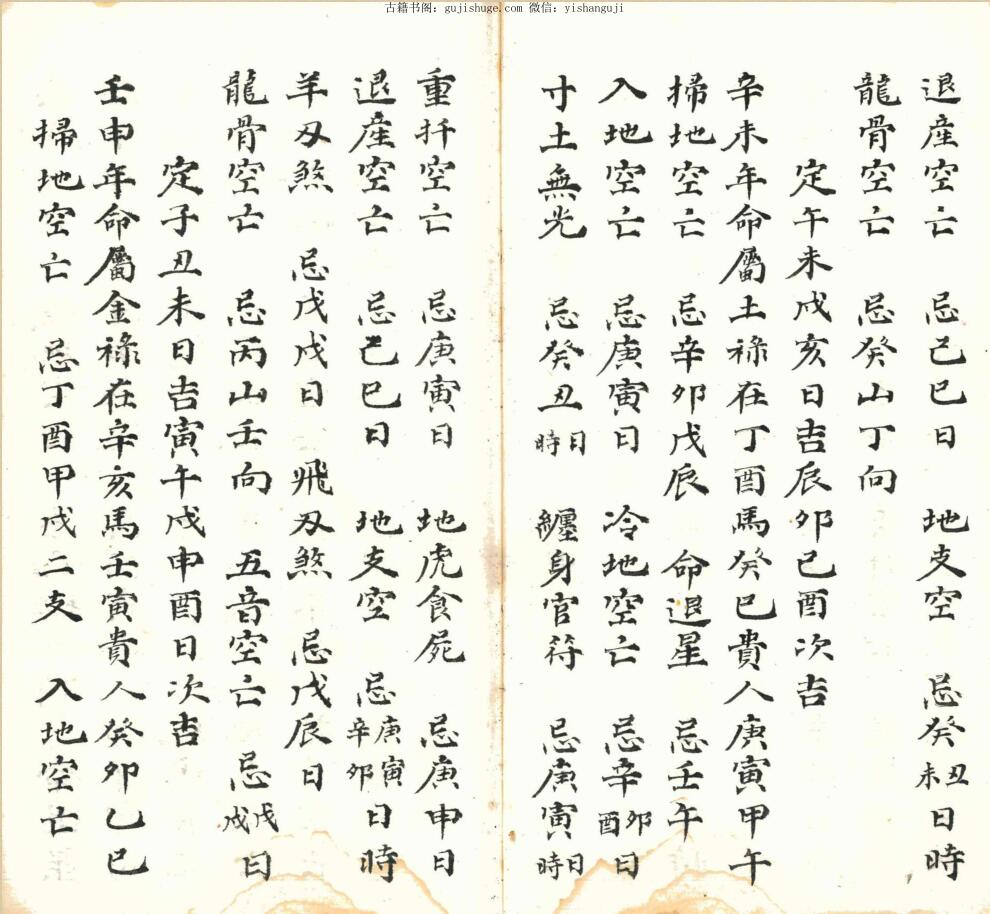 古籍书阁：gujishuge.com 微信：yishanguji
退產空亡 忌己巳日 地支空 忌癸丑未日時
龍骨空亡 忌癸山丁向
定午未戌亥日吉辰卯己酉次吉
辛未年命屬土祿在丁酉馬癸巳貴人庚寅甲午
掃地空亡 忌辛卯戊辰 命退星 忌壬午
入地空亡 忌庚寅日 冷地空亡 忌辛卯酉日
寸土無光 忌癸丑日時 纏身官符 忌庚寅日時
重扦空亡 忌庚寅日 地虎食屍 忌庚申日
退產空亡 忌己巳日 地支空 忌庚寅辛卯日時
羊刃煞 忌戊戌日 飛刃煞 忌戊辰日
龍骨空亡 忌丙山壬向 五音空亡 忌戊戌日
定子丑未日吉寅午戌申酉日次吉
壬申年命屬金祿在辛亥馬壬寅貴人癸卯乙巳
掃地空亡 忌丁酉甲戌二支 入地空亡